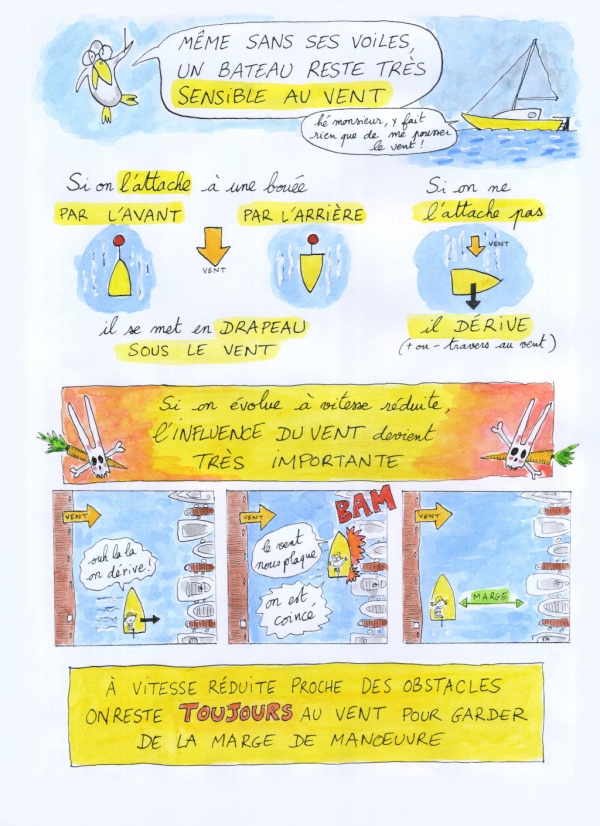 MÊME SANS SES VOILES,
UN BATEAU RESTE TRÈS
SENSIBLE AU VENT
hé monsieur, y fait
rien que de me pousser
le vent !
Si on l'attache à une bouée
PAR L'AVANT
PAR L'ARRIÈRE
VENT
il se met en DRAPEAU
SOUS LE VENT
Si on ne
l'attache pas
VENT
il DÉRIVE
(+ ou - travers au vent)
Si on évolue à vitesse réduite,
l'INFLUENCE DU VENT devient
TRÈS IMPORTANTE
VENT
ouh la la
on dérive !
VENT
BAM
le vent
nous plaque
on est
coincé
VENT
MARGE
À VITESSE RÉDUITE PROCHE DES OBSTACLES
ON RESTE TOUJOURS AU VENT POUR GARDER
DE LA MARGE DE MANŒUVRE